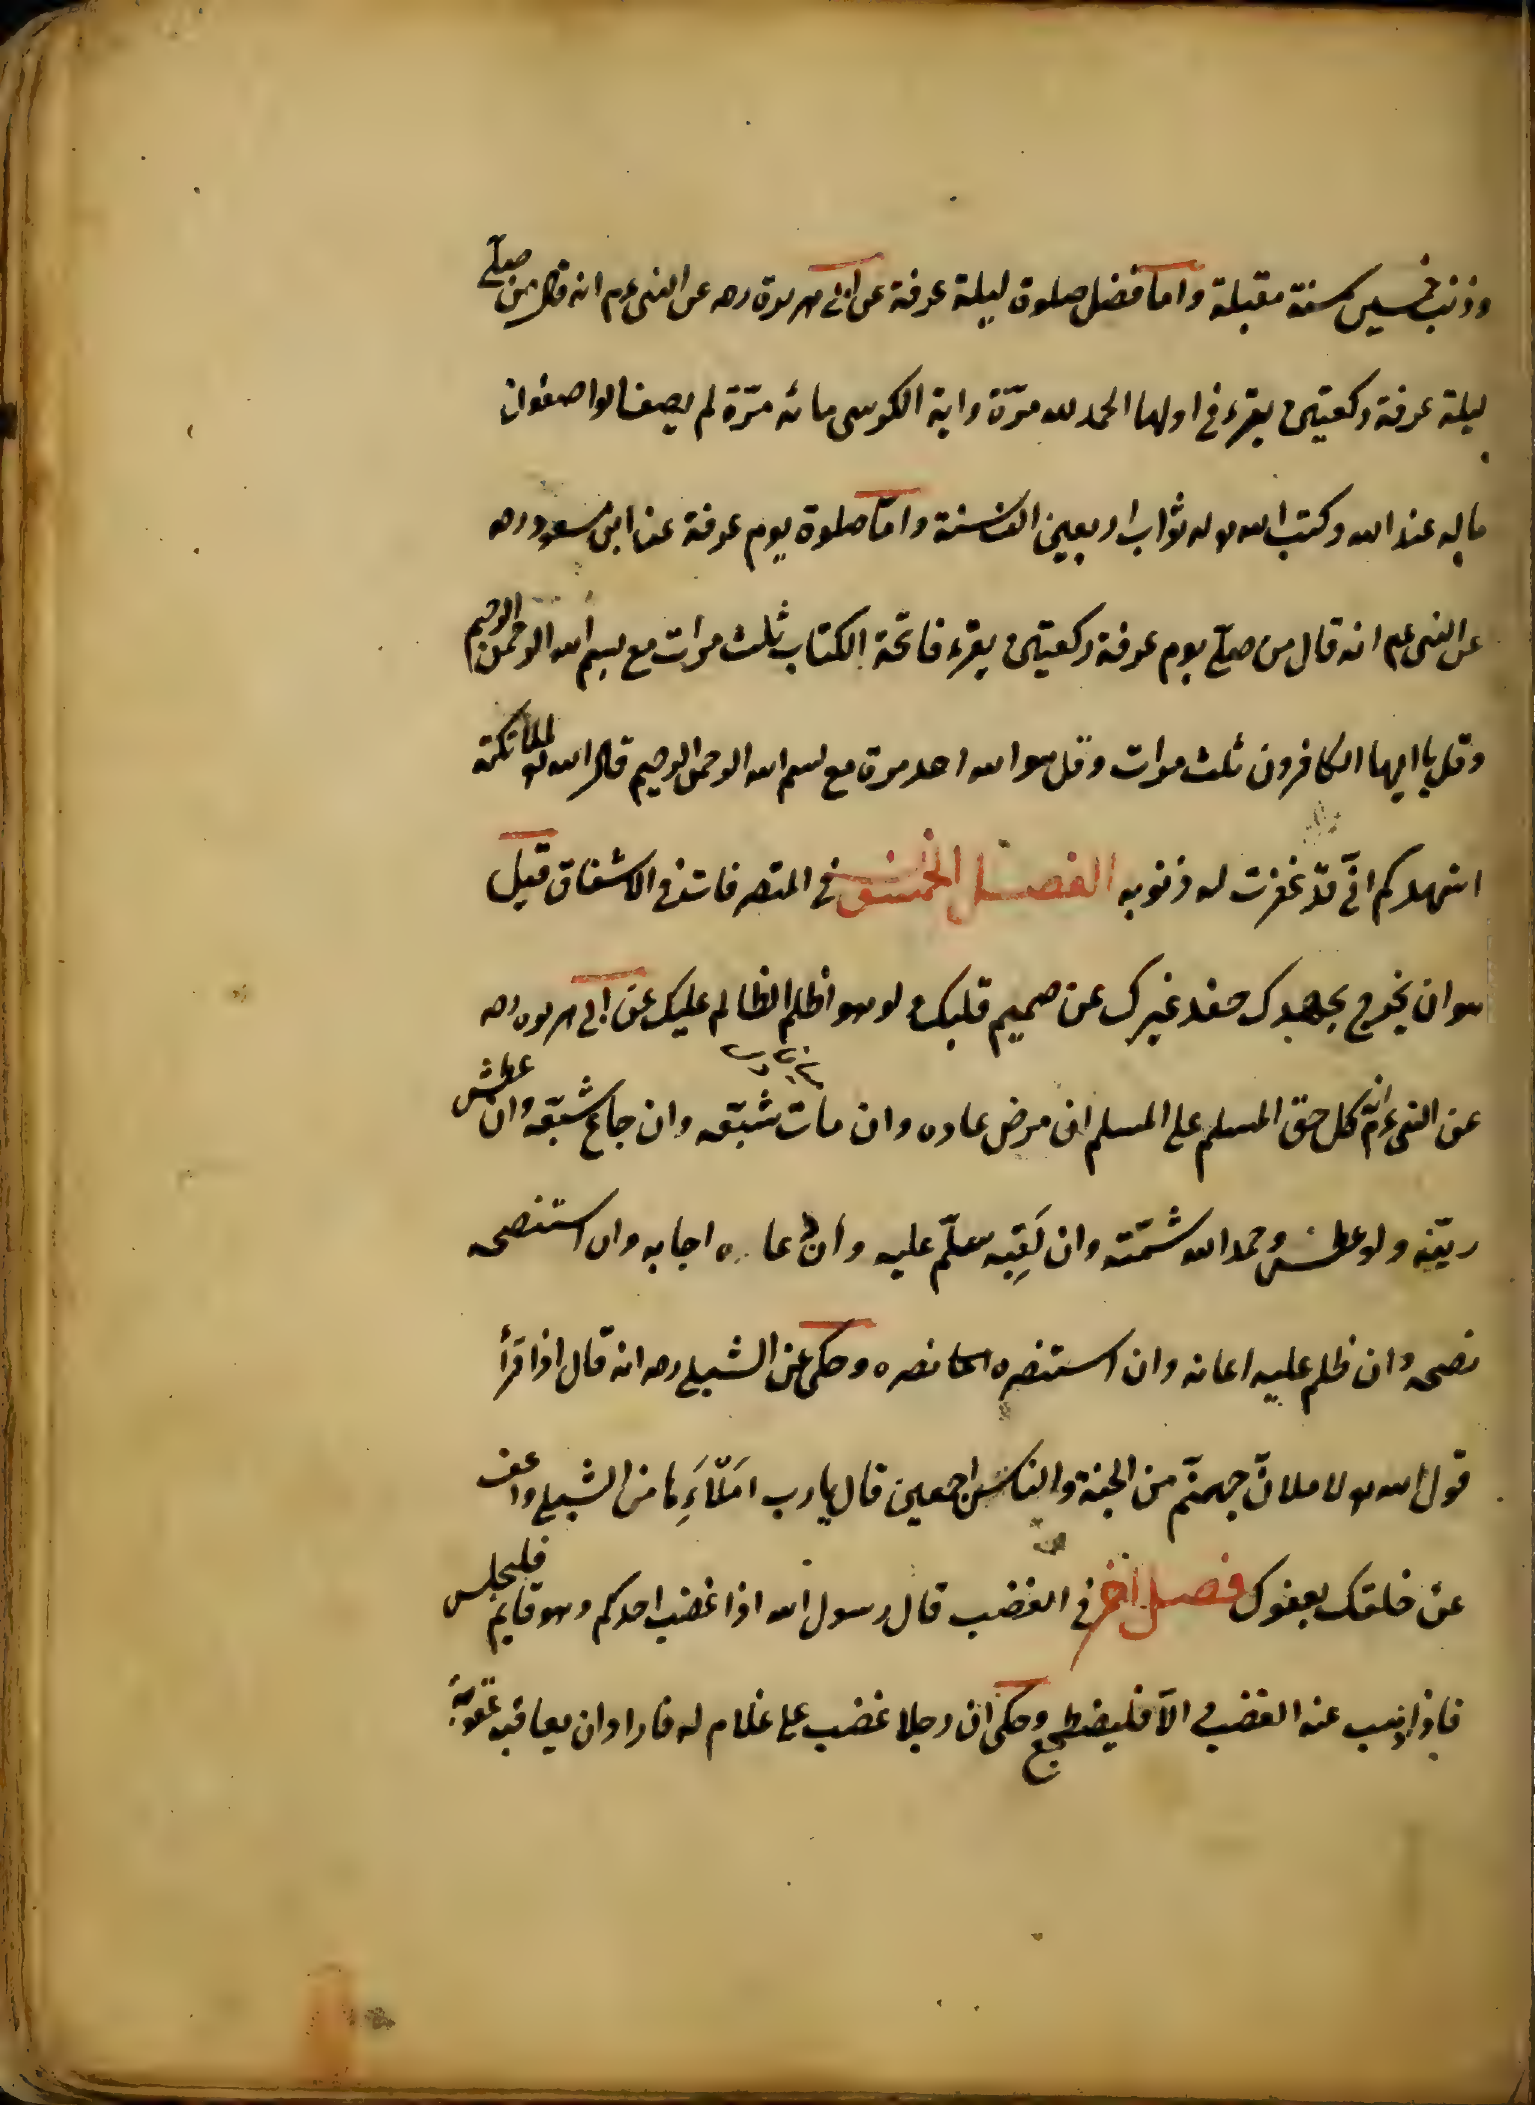 وذنب خمسين سنة مقبلة واما فضل صلوة ليلة عرفة عن ابى هريرة رصه عن النبى عم انه قال من صلّى
ليلة عرفة ركعتين يقرء فى اولها الحمد لله مرّة واية الكرسى مائه مرّة لم يصف الواصفون
ما له عند الله وكتب الله له ثواب اربعين الف سنة واما صلوة يوم عرفة عن ابن مسعود رصه
عن النبى عم انه قال من صلّى يوم عرفة ركعتين يقرء فاتحة الكتاب ثلث مرات مع بسم الله الرحمن الرحيم
وقل يا ايها الكافرون ثلث مرات وقل هو الله احد مرة مع بسم الله الرحمن الرحيم قال الله للملائكته
اشهدكم انّى قد غفرت له ذنوبه الفصل فى فى الاشفاق قيل
هو ان يخرج بجهدك حقد غيرك عن صميم قلبك ولو هو اظلم الظالم عليك عن ابى هريره رصه
عن النبى عم انه قال حق المسلم على المسلم ان مرض عاده وان مات شيّعه وان جاع شبّعه وان عطش
ريقه ولو عطس وحمد الله شمّته وان لَقِيَه سلّم عليه وان دعاه اجابه وان استنصحه
نصحه وان ظلم عليه اعانه وان استنصره نصره وحكى عن الشبلى رصه انه قال اذا قرأ
قول الله لاملانّ جهنّم من الجنة والناس اجمعين قال يا رب من الشبلى واعف
عن خلقك بعفوك فصل اخر فى الغضب قال رسول الله اذا غضب احدكم وهو قايم فليجلس
فاذا ذهب عنه الغضب والّا فليضطجع وحكى ان رجلا غضب على غلام له فاراد ان يعاقبه عقوبةً